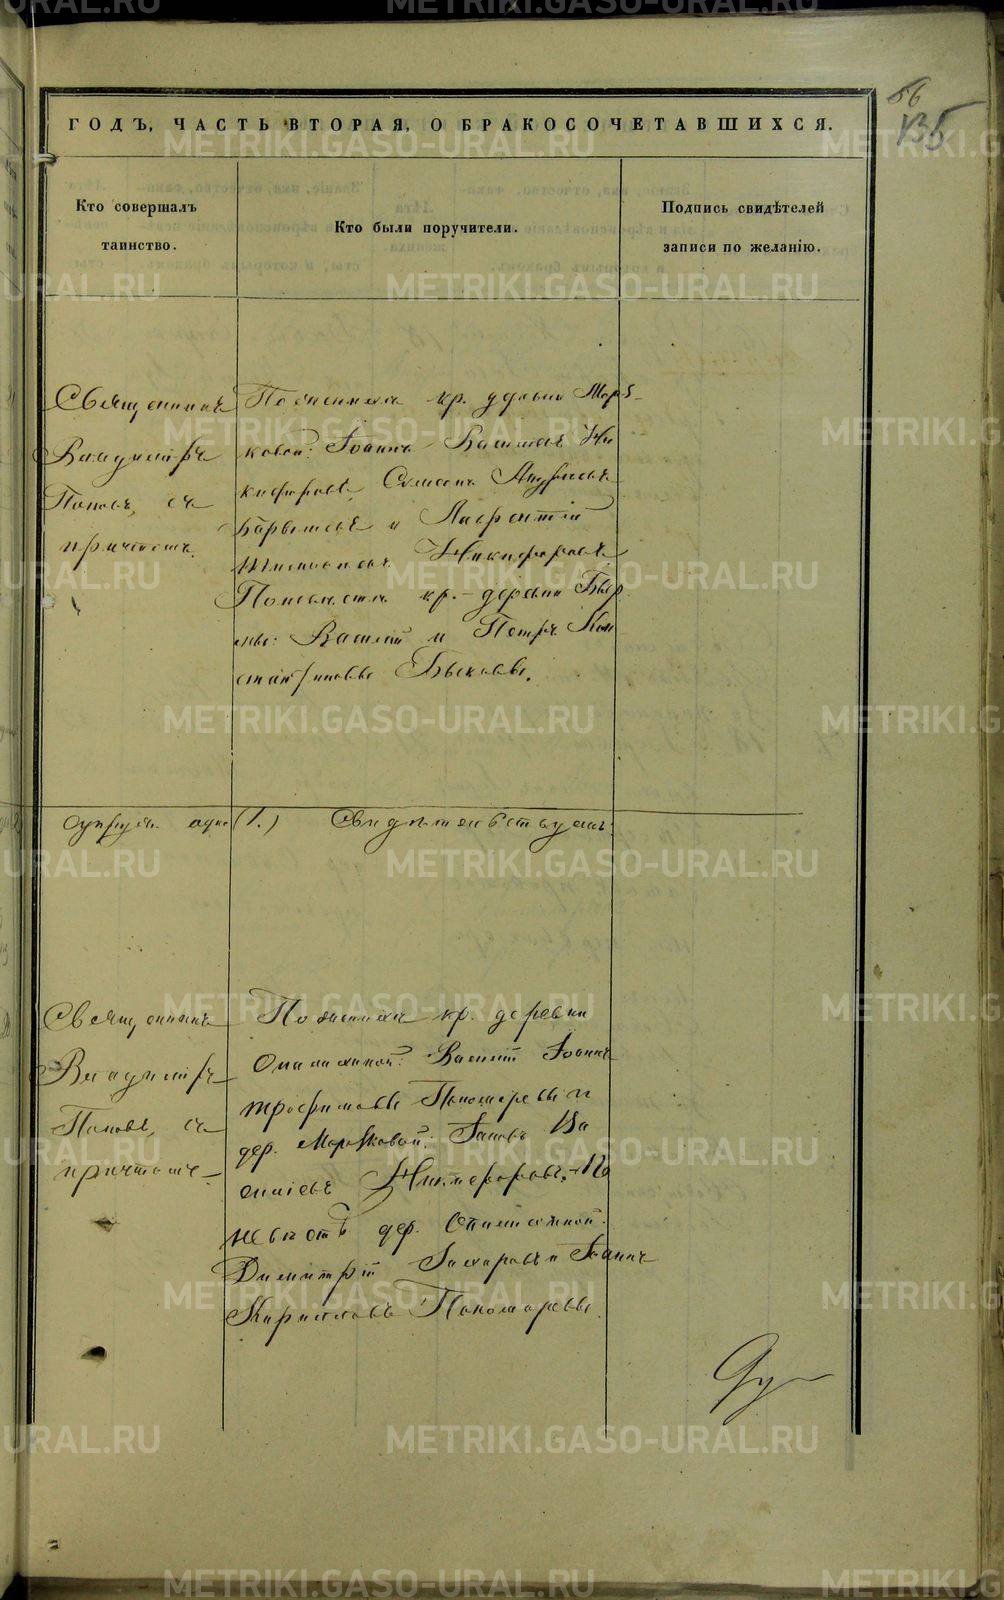 56
135
ГОДЪ, ЧАСТЬ ВТОРАЯ, О БРАКОСОЧЕТАВШИХСЯ.
Кто совершалъ
таинство.
Кто были поручители.
Подпись свидѣтелей
записи по желанію.
Священникъ
Владимiръ
Поповъ, съ
причтомъ.
По женихѣ кр. деревни Мор
ковой: Іоаннъ Васильевъ Ни
кифоровъ, Симеонъ Андреевъ
и Лаврентій
Никифоровъ
По невѣстѣ кр. деревни
Василій и Петръ Кон
стантиновы Быковы.
(1.) Свидѣтельствуемъ:
Священникъ
Владимiръ
Поповъ, съ
причтомъ
По женихѣ кр. деревни
Василій Іоаннъ
Трофимовы Пономаревы и
дер. Ва
сильевъ Никифоровъ. По
невѣстѣ дер.
Димитрій Захаровъ и Іоаннъ
Кирилловъ Пономаревы.
METRIKI.GASO-URAL.RU